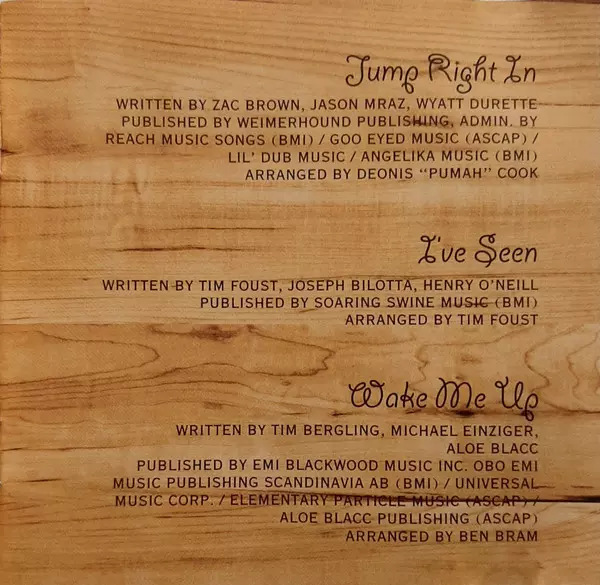 Jump Right In
WRITTEN BY ZAC BROWN, JASON MRAZ, WYATT DURETTE
PUBLISHED BY WEIMERHOUND PUBLISHING, ADMIN. BY
REACH MUSIC SONGS (BMI) / GOO EYED MUSIC (ASCAP) /
LIL' DUB MUSIC / ANGELIKA MUSIC (BMI)
ARRANGED BY DEONIS "PUMAH" COOK
I've Seen
WRITTEN BY TIM FOUST, JOSEPH BILOTTA, HENRY O'NEILL
PUBLISHED BY SOARING SWINE MUSIC (BMI)
ARRANGED BY TIM FOUST
Wake Me Up
WRITTEN BY TIM BERGLING, MICHAEL EINZIGER,
ALOE BLACC
PUBLISHED BY EMI BLACKWOOD MUSIC INC. OBO EMI
MUSIC PUBLISHING SCANDINAVIA AB (BMI) / UNIVERSAL
MUSIC CORP. / ELEMENTARY PARTICLE MUSIC (ASCAP) /
ALOE BLACC PUBLISHING (ASCAP)
ARRANGED BY BEN BRAM